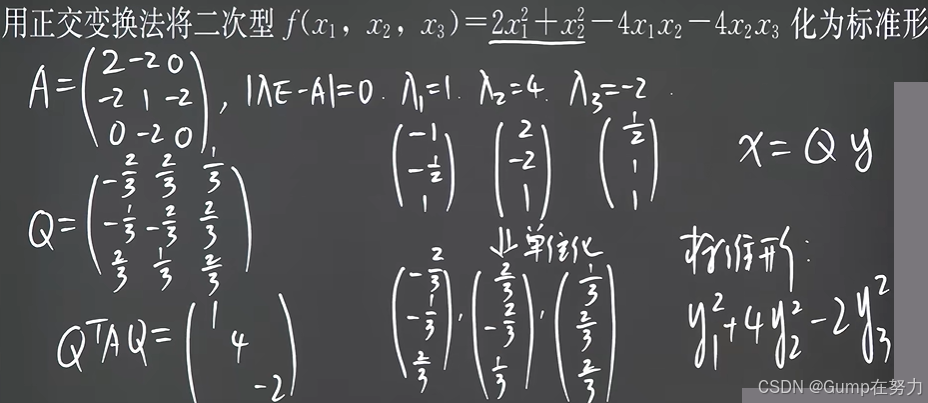 用正交变换法将二次型 f(x₁, x₂, x₃)=2x₁²+x₂²−4x₁x₂−4x₂x₃ 化为标准形
A=(2 -2 0
-2 1 -2
0 -2 0), |λE-A|=0. λ₁=1. λ₂=4. λ₃=-2.
(-1
-1/2
1) (2
-2
1) (1/2
1
1)
x=Qy
Q=(-2/3 2/3 1/3
-1/3 -2/3 2/3
2/3 1/3 2/3)
⇓单位化
(-2/3
-1/3
2/3), (2/3
-2/3
1/3), (1/3
2/3
2/3)
标准形:
y₁²+4y₂²-2y₃²
QᵀAQ=(1
4
-2)
CSDN @Gump在努力